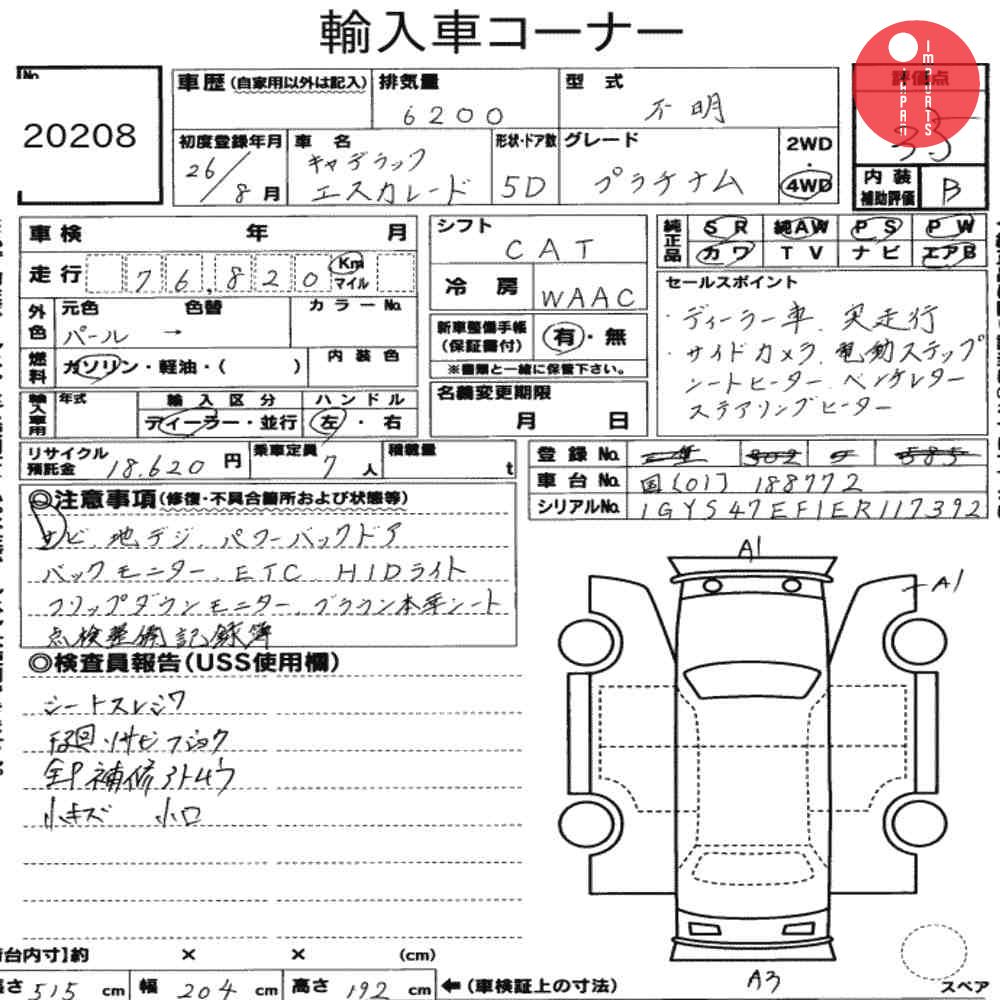 輸入車コーナー
JAPAN IMPORTS
No.
20208
車歴 (自家用以外は記入)
排気量
6200
型式
不明
評価点
3.5
初度登録年月
26/8月
車名
キャデラック
エスカレード
形状・ドア数
5D
グレード
プラチナム
2WD
・
4WD
内装
補助評価
B
車検 年 月
走行 76,820 Km
マイル
外色
元色 色替 カラーNo.
パール →
燃料
ガソリン・軽油・( )
内装色
輸入車用
年式 輸入区分 ハンドル
ディーラー・並行 左・右
シフト
CAT
冷房
WAAC
新車整備手帳
(保証書付)
有・無
※書類と一緒に保管下さい。
名義変更期限
月 日
純正品
SR 純AW PS PW
カワ TV ナビ エアB
セールスポイント
・ディーラー車、実走行
・サイドカメラ、電動ステップ
シートヒーター、ベンチレター
ステアリングヒーター
リサイクル
預託金 18,620 円
乗車定員
7人
積載量
t
登録No.
車台No. 国[01] 188772
シリアルNo. 1GYS47EF1ER117392
◎注意事項(修復・不具合箇所および状態等)
ナビ、地デジ、パワーバックドア
バックモニター、ETC、HIDライト
フリップダウンモニター、ブラウン本革シート
点検整備記録簿
◎検査員報告(USS使用欄)
シートスレシワ
下廻りサビ
補修
小キズ
A1
A1
A3
荷台内寸】約 × × (cm)
長さ 515 cm 幅 204 cm 高さ 192 cm ←(車検証上の寸法)
スペア